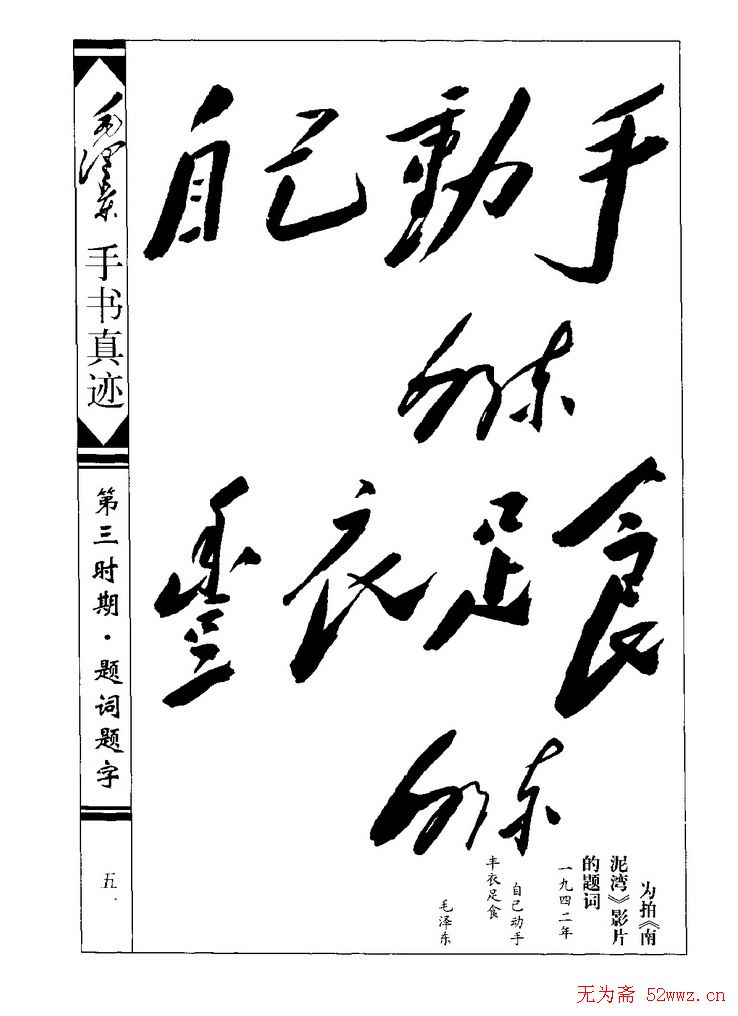 自己動手
泽东
豐衣足食
泽东
为拍《南
泥湾》影片
的题词
一九四二年
自己动手
丰衣足食
毛泽东
毛泽东
手书真迹
第三时期·题词题字
五一
无为斋 52wwz.cn